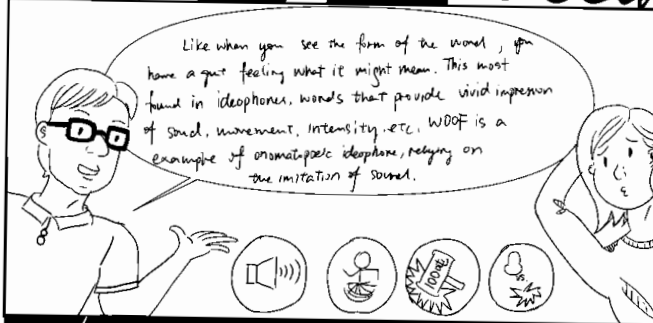 Like when you see the form of the word, you
have a gut feeling what it might mean. This most
found in ideophones, words that provide vivid impression
of sound, movement, intensity, etc. WOOF is a
example of onomatopoeic ideophone, relying on
the imitation of sound.
vs.